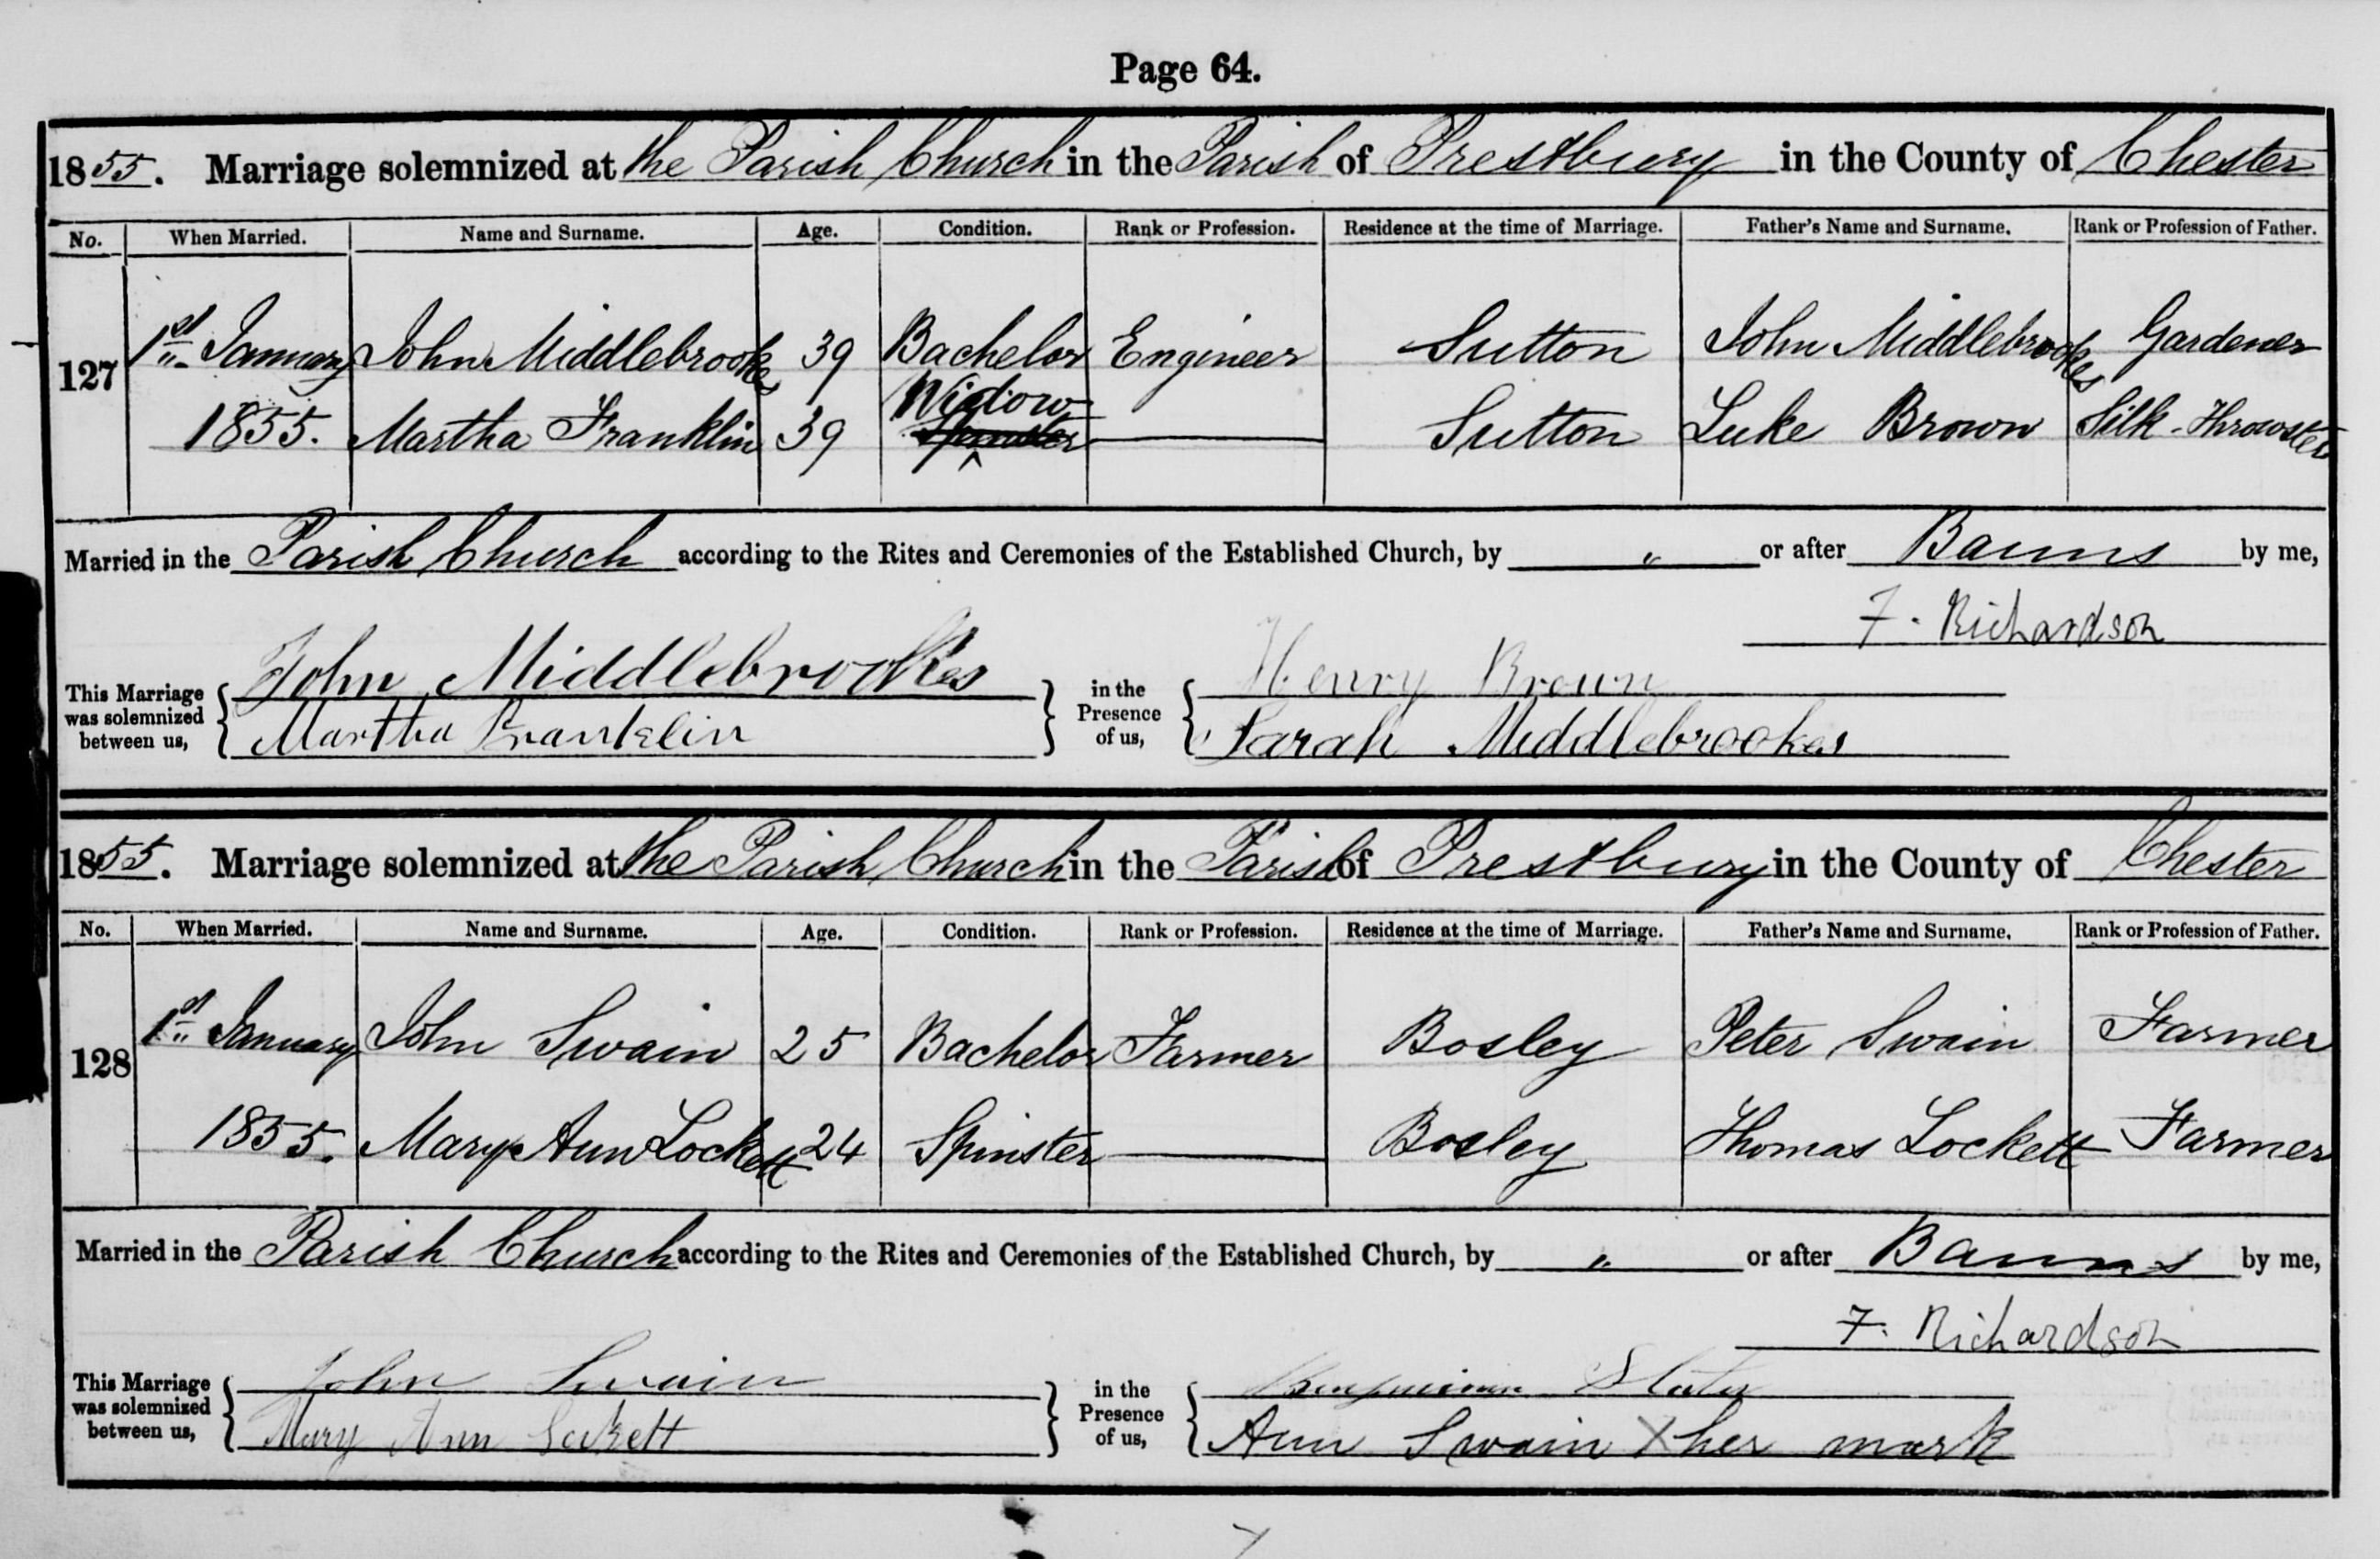 Page 64.
1855. Marriage solemnized at the Parish Church in the Parish of Prestbury in the County of Chester
No. When Married. Name and Surname. Age. Condition. Rank or Profession. Residence at the time of Marriage. Father's Name and Surname. Rank or Profession of Father.
127 1st January John Middlebrookes 39 Bachelor Engineer Sutton John Middlebrookes Gardener
Widow
1855. Martha Franklin 39 Spinster Sutton Luke Brown Silk-Throwster
Married in the Parish Church according to the Rites and Ceremonies of the Established Church, by " or after Banns by me,
F. Richardson
This Marriage was solemnized between us, John Middlebrookes in the Presence of us, Henry Brown
Martha Franklin Sarah Middlebrookes
1855. Marriage solemnized at the Parish Church in the Parish of Prestbury in the County of Chester
No. When Married. Name and Surname. Age. Condition. Rank or Profession. Residence at the time of Marriage. Father's Name and Surname. Rank or Profession of Father.
128 1st January John Swain 25 Bachelor Farmer Bosley Peter Swain Farmer
1855. Mary Ann Lockett 24 Spinster Bosley Thomas Lockett Farmer
Married in the Parish Church according to the Rites and Ceremonies of the Established Church, by " or after Banns by me,
F. Richardson
This Marriage was solemnized between us, John Swain in the Presence of us, Benjamin Slater
Mary Ann Lockett Ann Swain X her mark